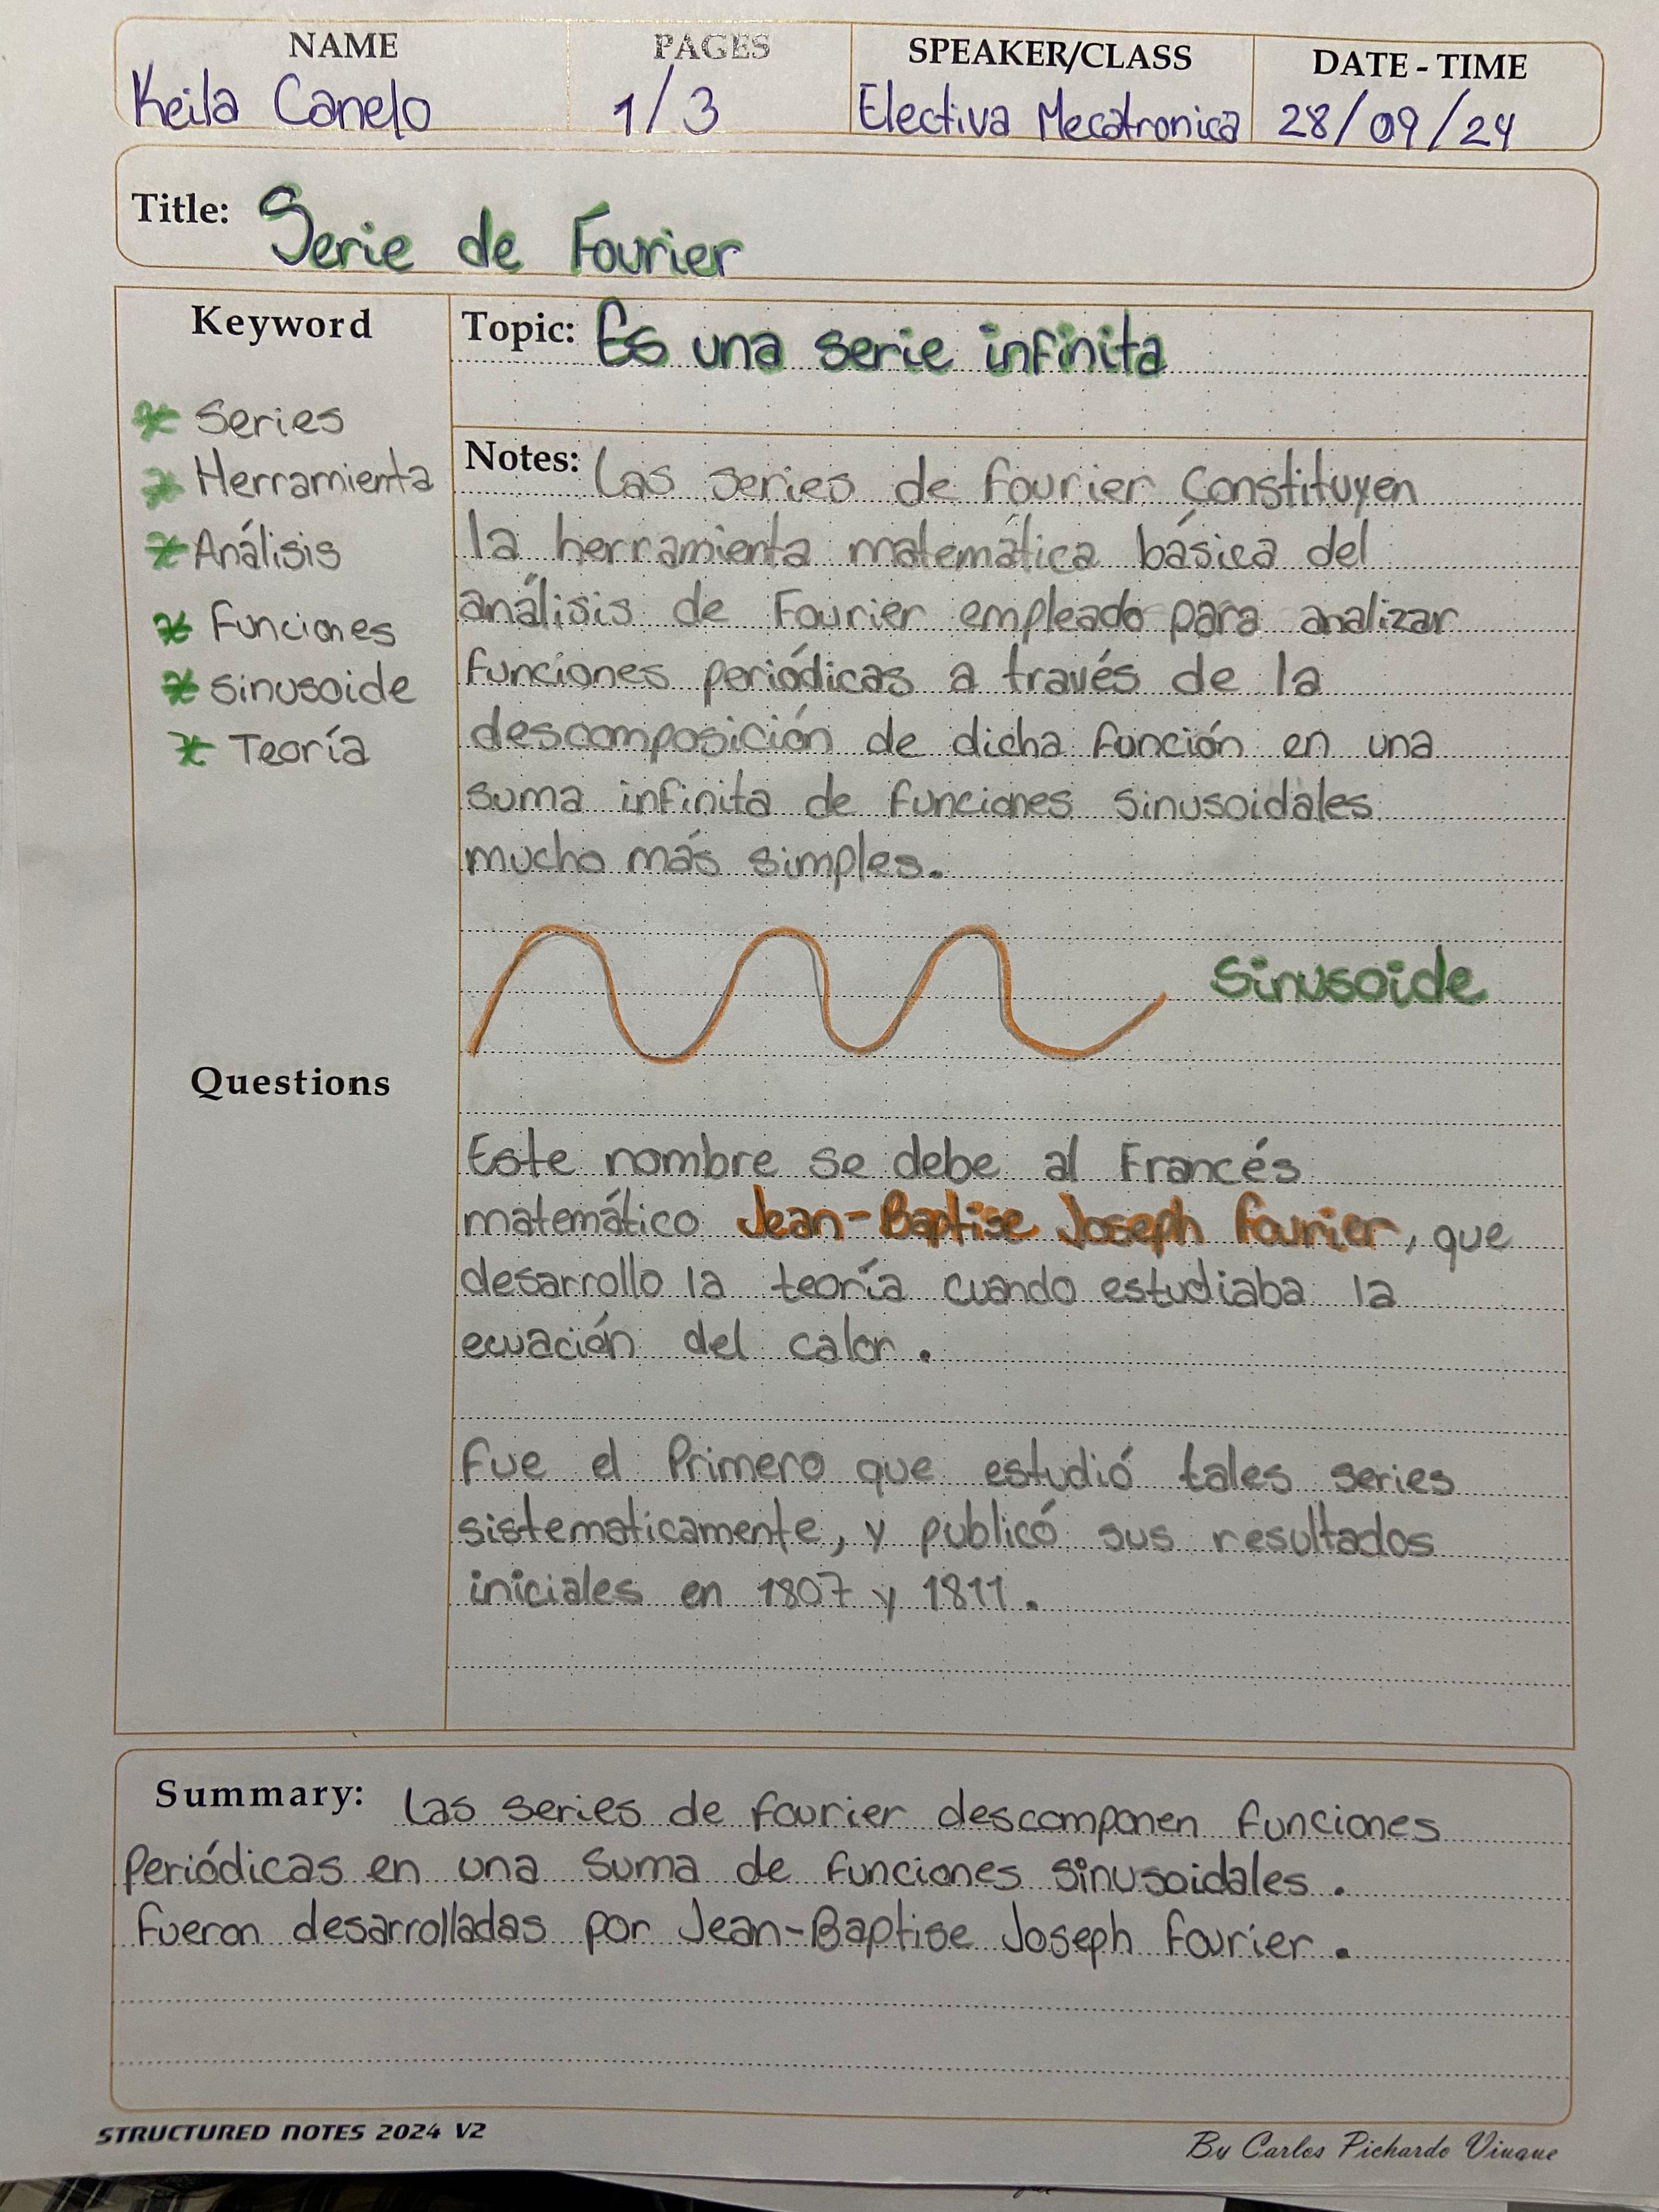 NAME PAGES SPEAKER/CLASS DATE - TIME
Keila Canelo 1/3 Electiva Mecatronica 28/09/24
Title: Serie de Fourier
Keyword
* Series
* Herramienta
* Análisis
* Funciones
* Sinusoide
* Teoría
Questions
Topic: Es una serie infinita
Notes: Las series de Fourier Constituyen
la herramienta matemática básica del
análisis de Fourier empleado para analizar
funciones periódicas a través de la
descomposición de dicha función en una
suma infinita de funciones sinusoidales
mucho más simples.
Sinusoide
Este nombre se debe al Francés
matemático Jean-Baptise Joseph Fourier, que
desarrollo la teoría cuando estudiaba la
ecuación del calor.
Fue el Primero que estudió tales series
sistematicamente, y publicó sus resultados
iniciales en 1807 y 1811.
Summary: Las series de Fourier descomponen funciones
Periódicas en una suma de funciones sinusoidales.
Fueron desarrolladas por Jean-Baptise Joseph Fourier.
STRUCTURED NOTES 2024 V2
By Carlos Pichardo Viuque